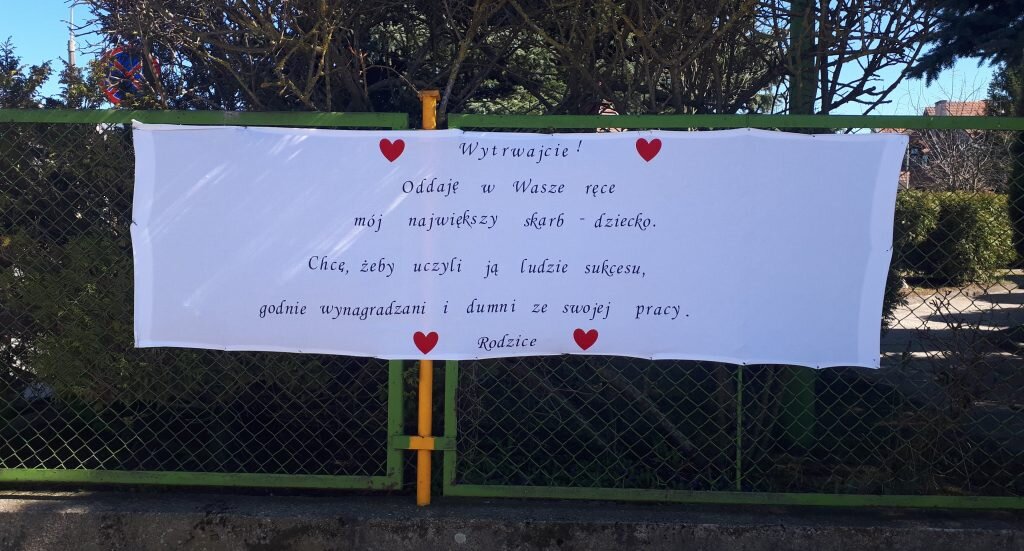 Wytrwajcie!
Oddaję w Wasze ręce
mój największy skarb - dziecko.
Chcę, żeby uczyli ją ludzie sukcesu,
godnie wynagradzani i dumni ze swojej pracy.
Rodzice